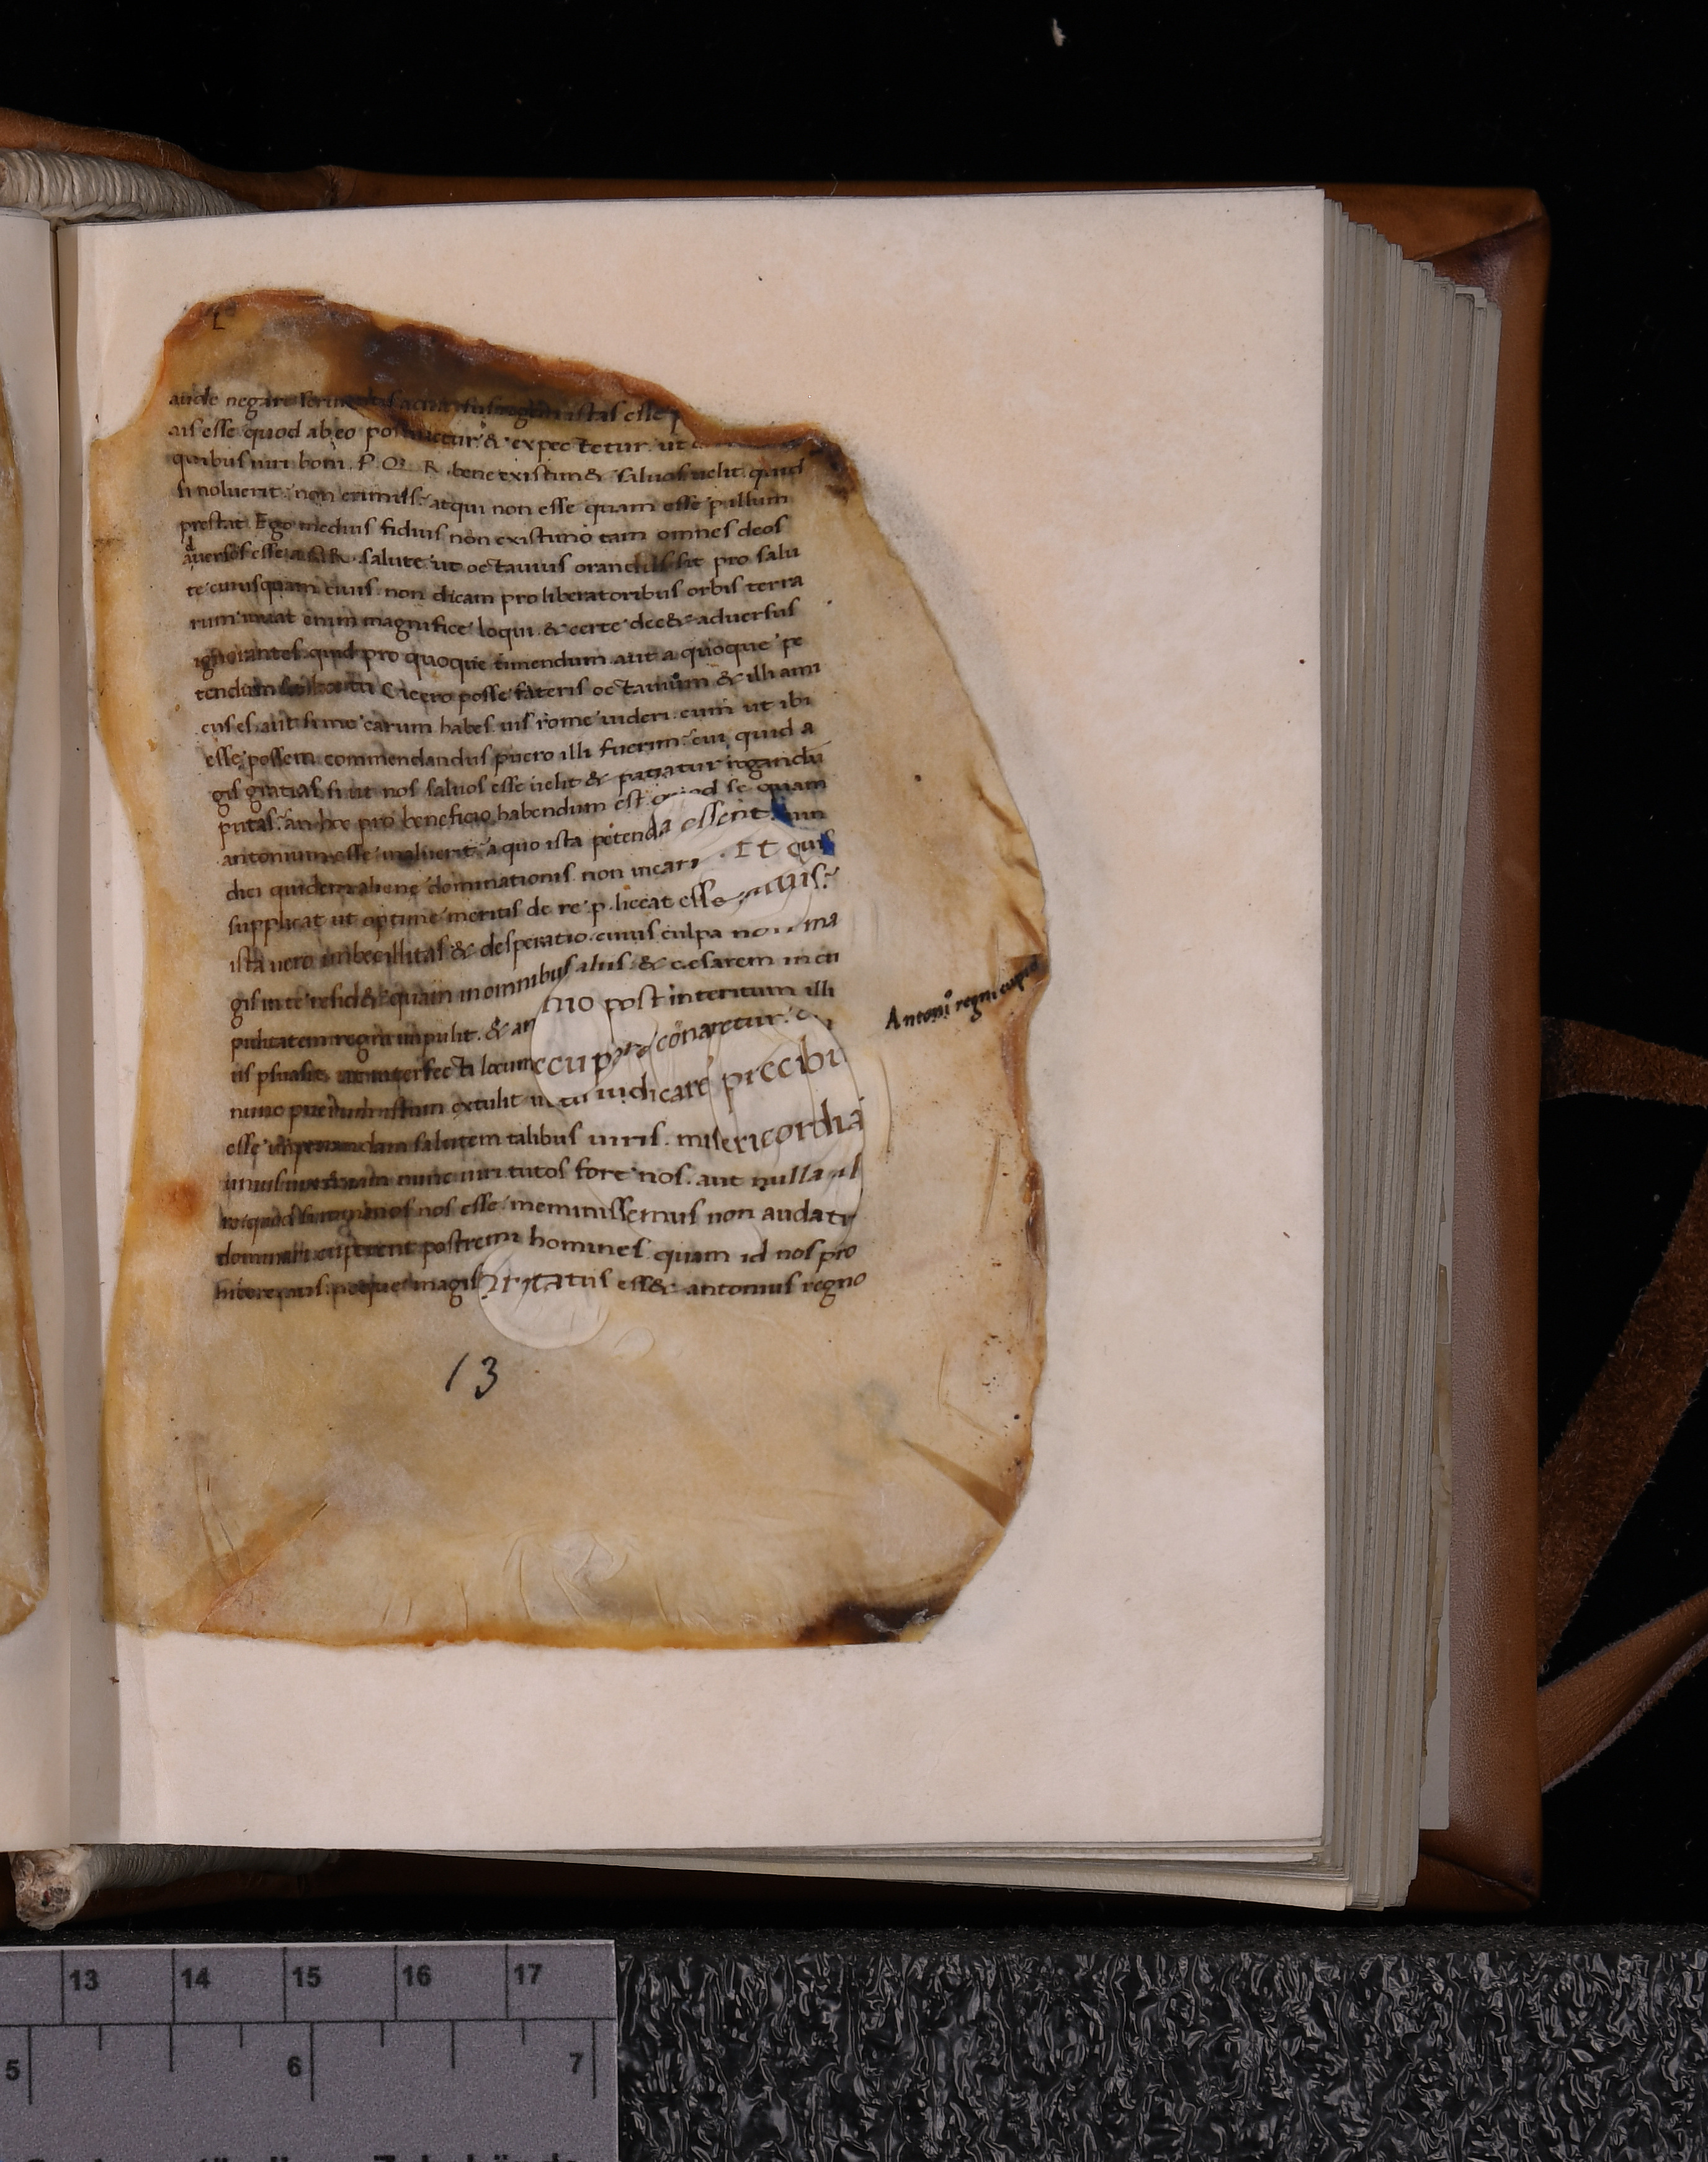 aude negare servi ac si istas esse p
uis esse quod ab eo postuletur & expectetur ut
quibus viri boni .P. Q. R. bene existim& salvos velit quid
si noluerit non erimus atqui non esse quam esse p illum
prestat Ego medius fidius non existimo tam omnes deos
aversos esse a P.Q.R. salute ut octavius orandus sit pro salu
te cuiusquam civis non dicam pro liberatoribus orbis terra
rum iuvat enim magnifice loqui & certe dec& adversus
ignorantes quid pro quoque timendum aut a quoque pe
tendum sit hoc tu Cicero posse fateris octavium & illi ami
cus es aut si me carum habes vis rome videri cum ut ibi
esse possem commendandus puero illi fuerim cui quid a
gis gratias si ut nos salvos esse velit & patiatur rogandu
putas an hoc pro beneficio habendum est quod se quam
antonium esse maluerit a quo ista petenda essent vin
dici quidem alienę dominationis non vicari . Et quis
supplicat ut optime meritis de re .p. liceat esse salvis
ista vero imbecillitas & desperatio cuius culpa non ma
gis in te resid& quam in omnibus aliis & cesarem in cu
piditatem regni impulit . & antonio post interitum illi
us psuasit ut interfecti locum occupare conaretur &
nunc puerum istum extulit ut tu iudicare precibu
esse impetrandam salutem talibus viris . misericordia
unius vix etiam nunc viri tutos fore nos . aut nulla al
io quod si romanos nos esse meminissemus non audati
dominari cuperent postremi homines quam id nos pro
hiberemus neque magis irritatus ess& antonius regno
Antoni regni cupid
13